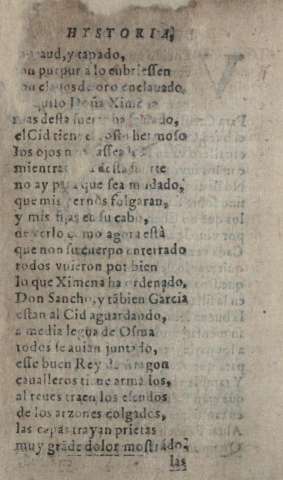 HYSTORIA,
y tapado,
purpur a lo cubriessen
clauos de oro enclauado.
quito Doña Xime
mas desta
el Cid tiene rosto hermoso
los ojos
mientras
no ay para que sea mudado,
que mis yernos folgaran,
y mis fijas en su cabo,
de verlo como agora està
que non su cuerpo enterrado
todos vuieron por bien
lo que Ximena ha ordenado,
Don Sancho, y tābien Garcia
estan al Cid aguardando,
a media legua de Osma
todos se auian juntado,
esse buen Rey de Aragon
caualleros tiene armados,
al reues traen los escudos
de los arzones colgados,
las capas trayan prietas
muy grāde dolor mostrādo,
las